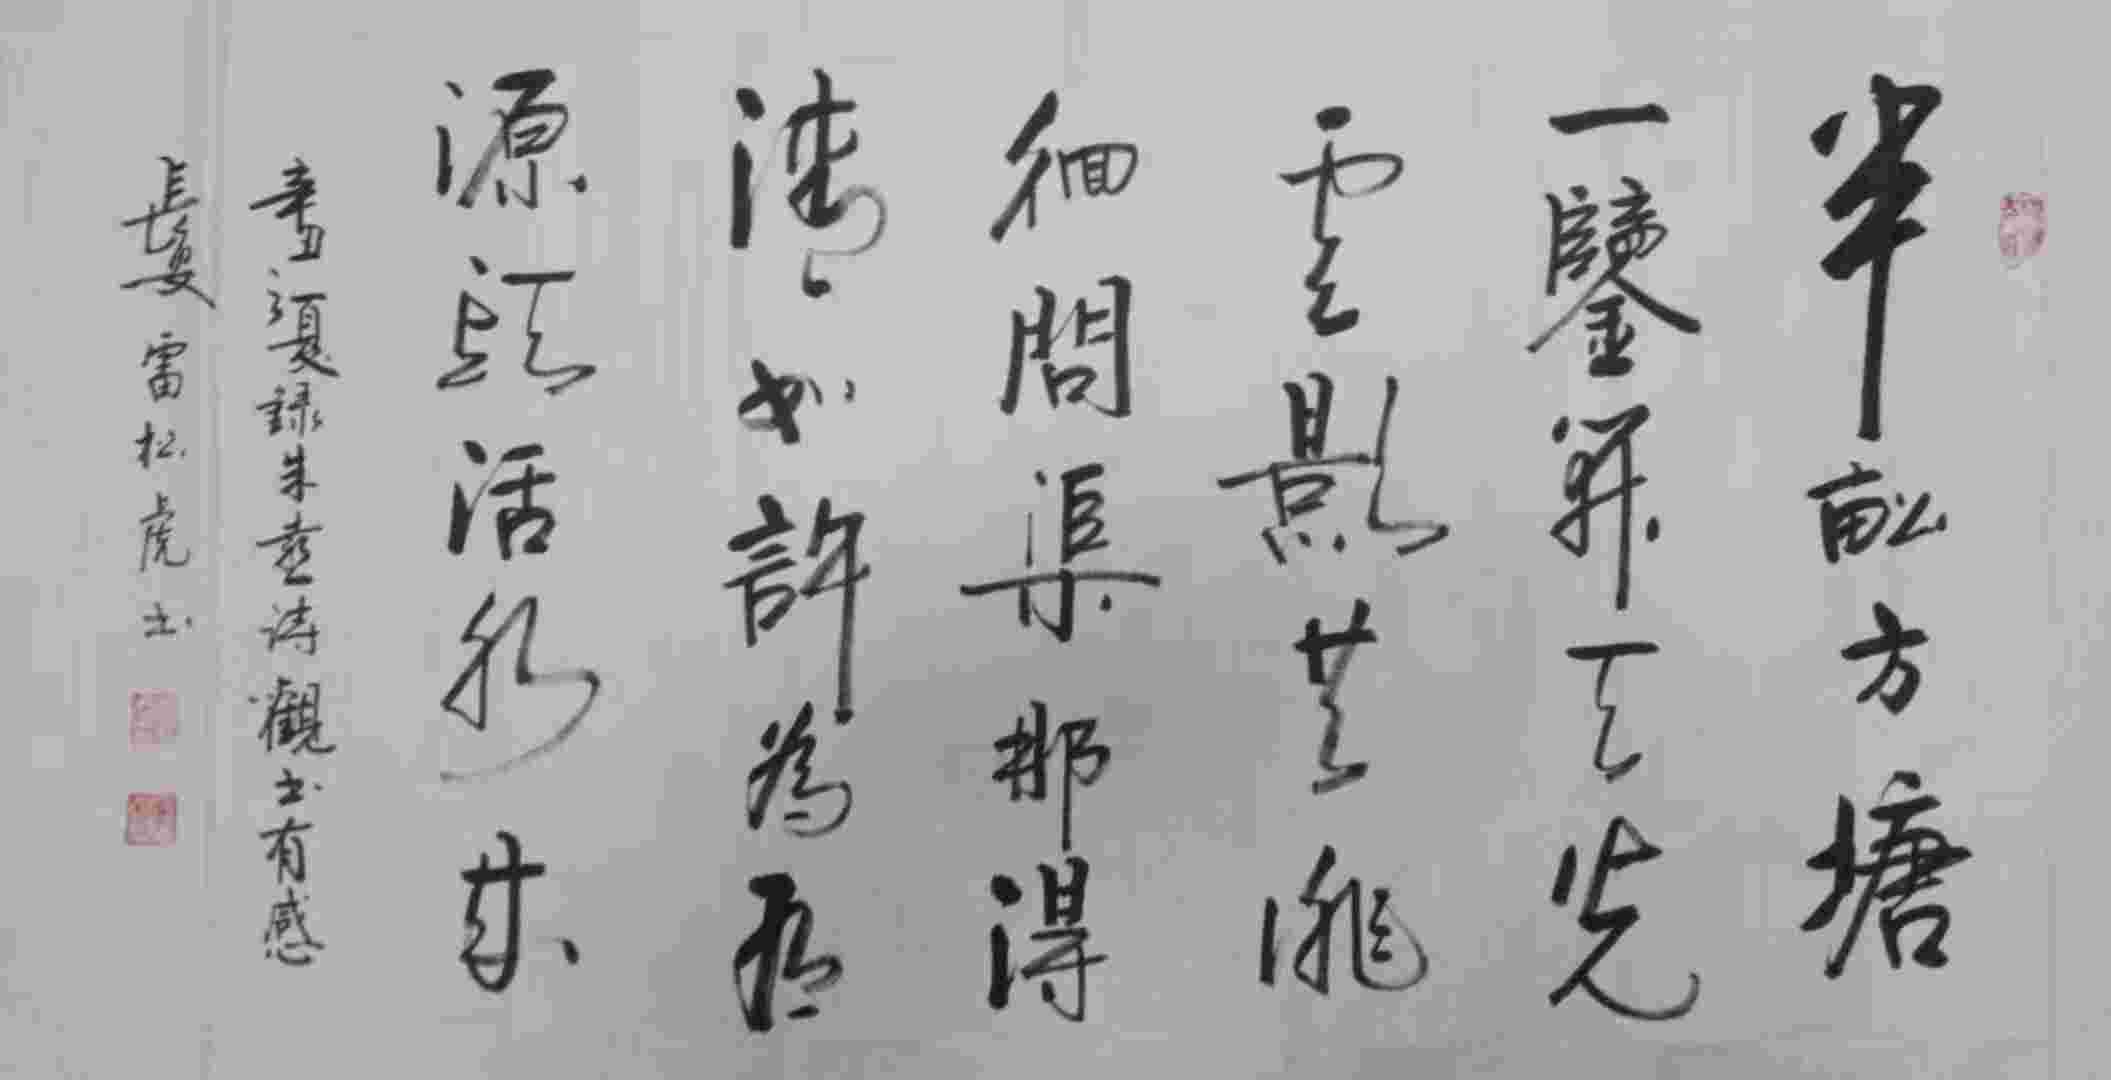 半畝方塘
一鑒開天光
雲影共徘
徊問渠那得
清如許為有
源頭活水來
辛丑夏録朱熹诗觀书有感
雷松虎书